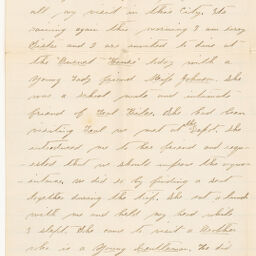 all my visit in this City. It is
raining again this morning I am sorry
Bixler and I are invited to dine at
the Burnet House today with a
Young Lady friend Miss Johnson. She
was a school mate and intimate
friend of Bixler. She had been
visiting and we met at the Depot. She
introduced me to her friend and requ-
ested that we should improve the acqua-
intance. We did so by finding a seat
together during the trip. She eat a lunch
with me and held my head while
I slept. She came to visit a Brother
who is a Young Gentleman. He did